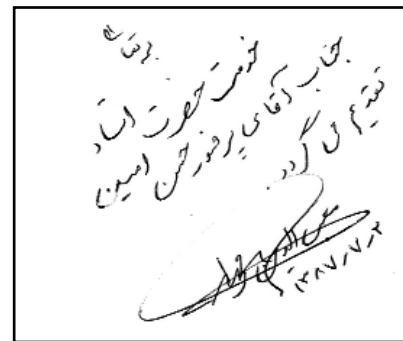 خدمت حضرت استاد
جناب آقای پرفسور حسن امین
تقدیم می گردد
۱۳۸۷/۷/۲